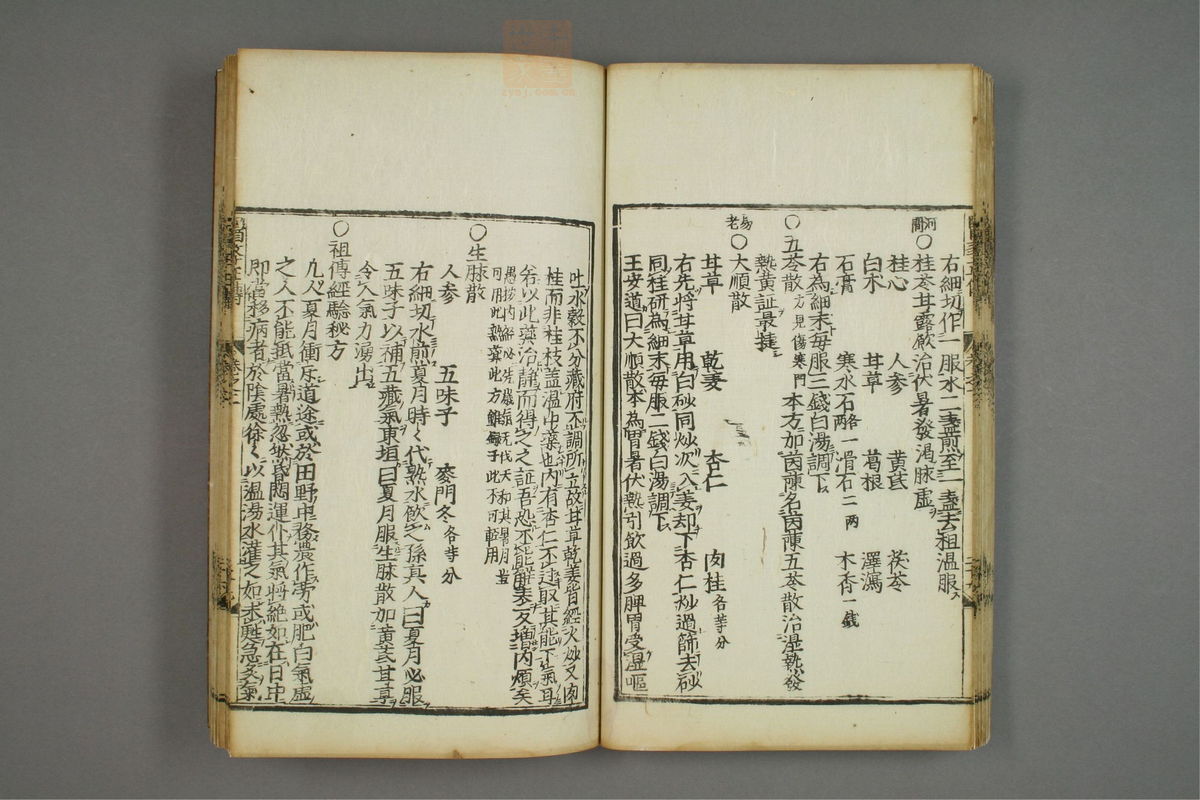 右細切作一服水二盞煎至一盞去柤溫服
河間
○桂苓甘露飮治伏暑發渴脉虛
桂心 人參 黃芪 茯苓
白朮 甘草 葛根 澤瀉
石膏 寒水石各一兩 滑石二兩 木香一錢
右為細末每服三錢白湯調下
○五苓散方見傷寒門本方加茵蔯名茵蔯五苓散治濕熱發
熱黃証最捷
易老
○大順散
甘草 乾姜 杏仁 肉桂各等分
右先將甘草用白砂同炒次入姜却下杏仁炒過篩去砂
同桂研為細末每服二錢白湯調下
王安道曰大順散本為冒暑伏熱引飮過多脾胃受濕嘔
吐水穀不分藏府不調所立故甘草乾姜皆經火炒又肉
桂而非桂枝盖溫中藥也內有杏仁不過取其能下氣耳
若以此藥治靜而得之之証吾恐不能解表反增內煩矣
○生脉散
人參 五味子 麥門冬各等分
右細切水煎夏月時〻代熟水飮之孫真人曰夏月必服
五味子以補五藏氣東垣曰夏月服生脉散加黃芪甘草
令人氣力湧出
○祖傳經驗秘方
凡人夏月衝斥道途或於田野中務農作勞或肥白氣虛
之人不能抵當暑熱忽然昏悶運仆其氣將絕如在日中
即當移病者於陰處徐〻以溫湯水灌之如未甦急灸氣